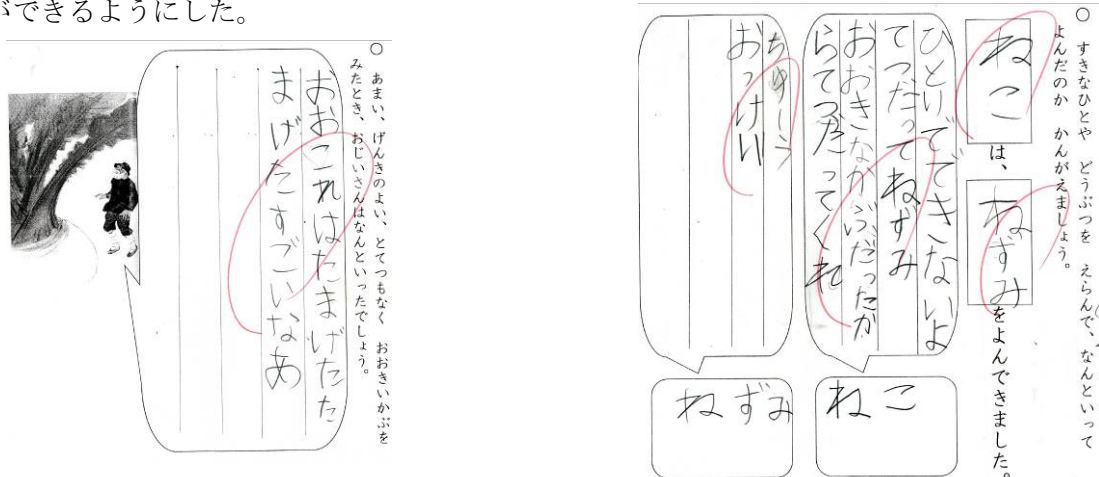 ができるようにした。
○ あまい、げんきのよい、とてつもなく おおきいかぶを
みたとき、おじいさんはなんといったでしょう。
おおこれはたまげたた
まげたすごいなあ
○ すきなひとや どうぶつを えらんで、なんといって
よんだのか かんがえましょう。
ねこは、ねずみをよんできました。
ひとりでできないよ
てつだってねずみ
おおきなかぶだったか
らてつだってくれ
ねこ
ちゅーう
おっけい
ねずみ